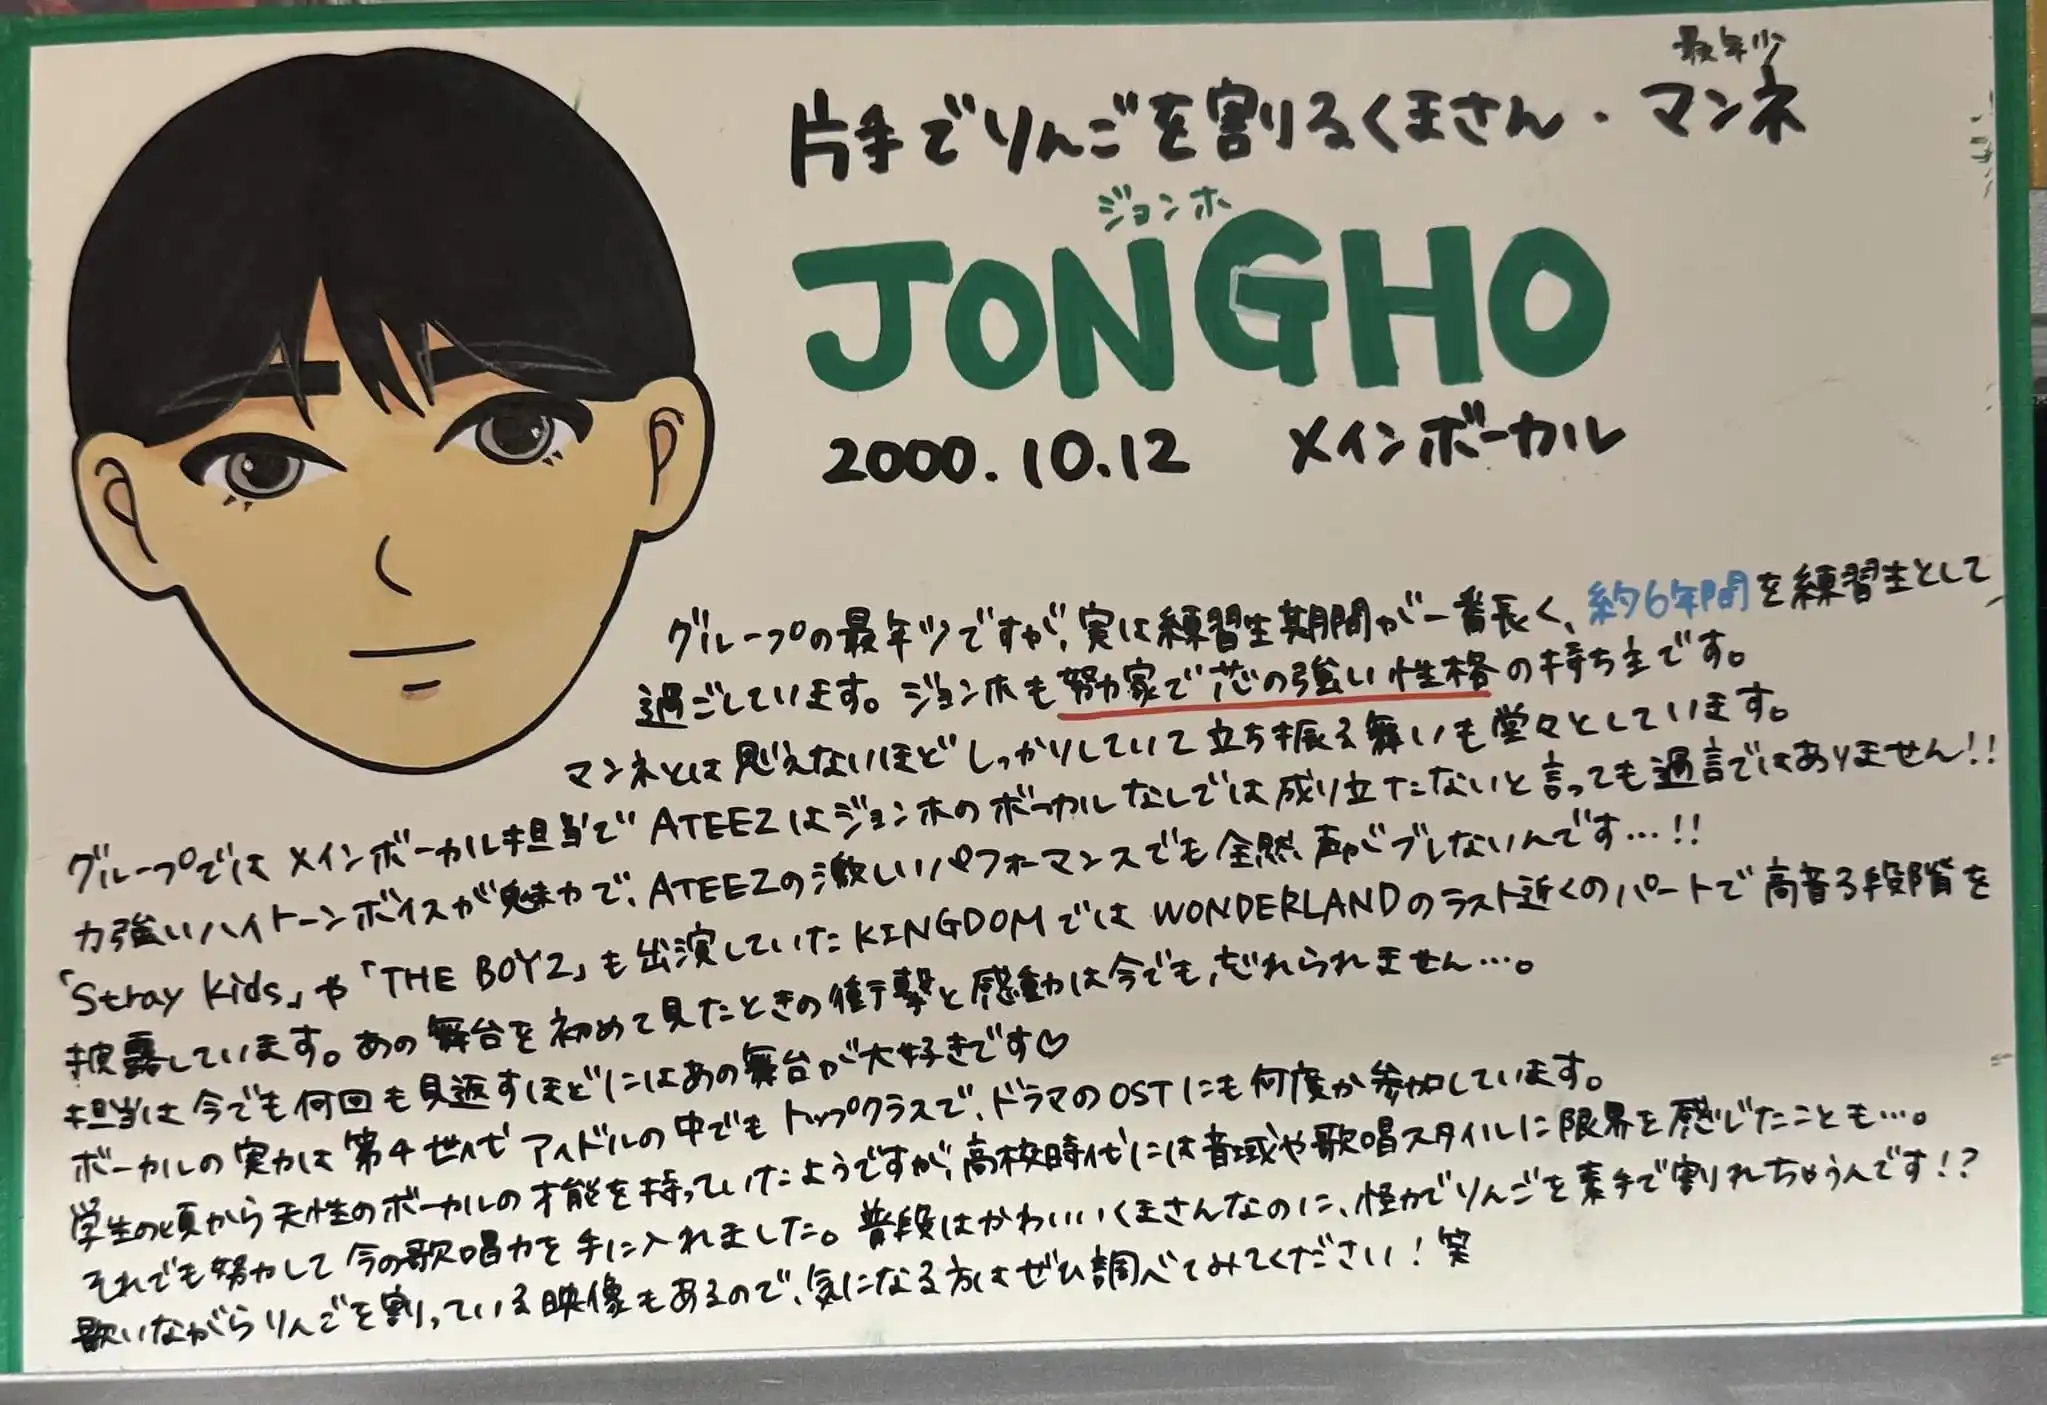 最年少
片手でりんごを割りるくまさん・マンネ
ジョンホ
JONGHO
2000.10.12 メインボーカル
グループの最年少ですが、実は練習生期間が一番長く、約6年間を練習生として
過ごしています。ジョンホも努力家で芯の強い性格の持ち主です。
マンネとは思えないほどしっかりしていて立ち振る舞いも堂々としています。
グループではメインボーカル担当でATEEZはジョンホのボーカルなしでは成り立たないと言っても過言ではありません!!
力強いハイトーンボイスが魅力で、ATEEZの激しいパフォーマンスでも全然声がブレないんです…!!
「Stray Kids」や「THE BOYZ」も出演していたKINGDOMではWONDERLANDのラスト近くのパートで高音3段階を
披露しています。あの舞台を初めて見たときの衝撃と感動は今でも忘れられません…。
担当は今でも何回も見返すほどにはあの舞台が大好きです♡
ボーカルの実力は第4世代アイドルの中でもトップクラスで、ドラマのOSTにも何度か参加しています。
学生の頃から天性のボーカルの才能を持っていたようですが、高校時代には音域や歌唱スタイルに限界を感じたことも…。
それでも努力して今の歌唱力を手に入れました。普段はかわいいくまさんなのに、怪力でりんごを素手で割れちゃうんです!?
歌いながらりんごを割っている映像もあるので、気になる方はぜひ調べてみてください!笑